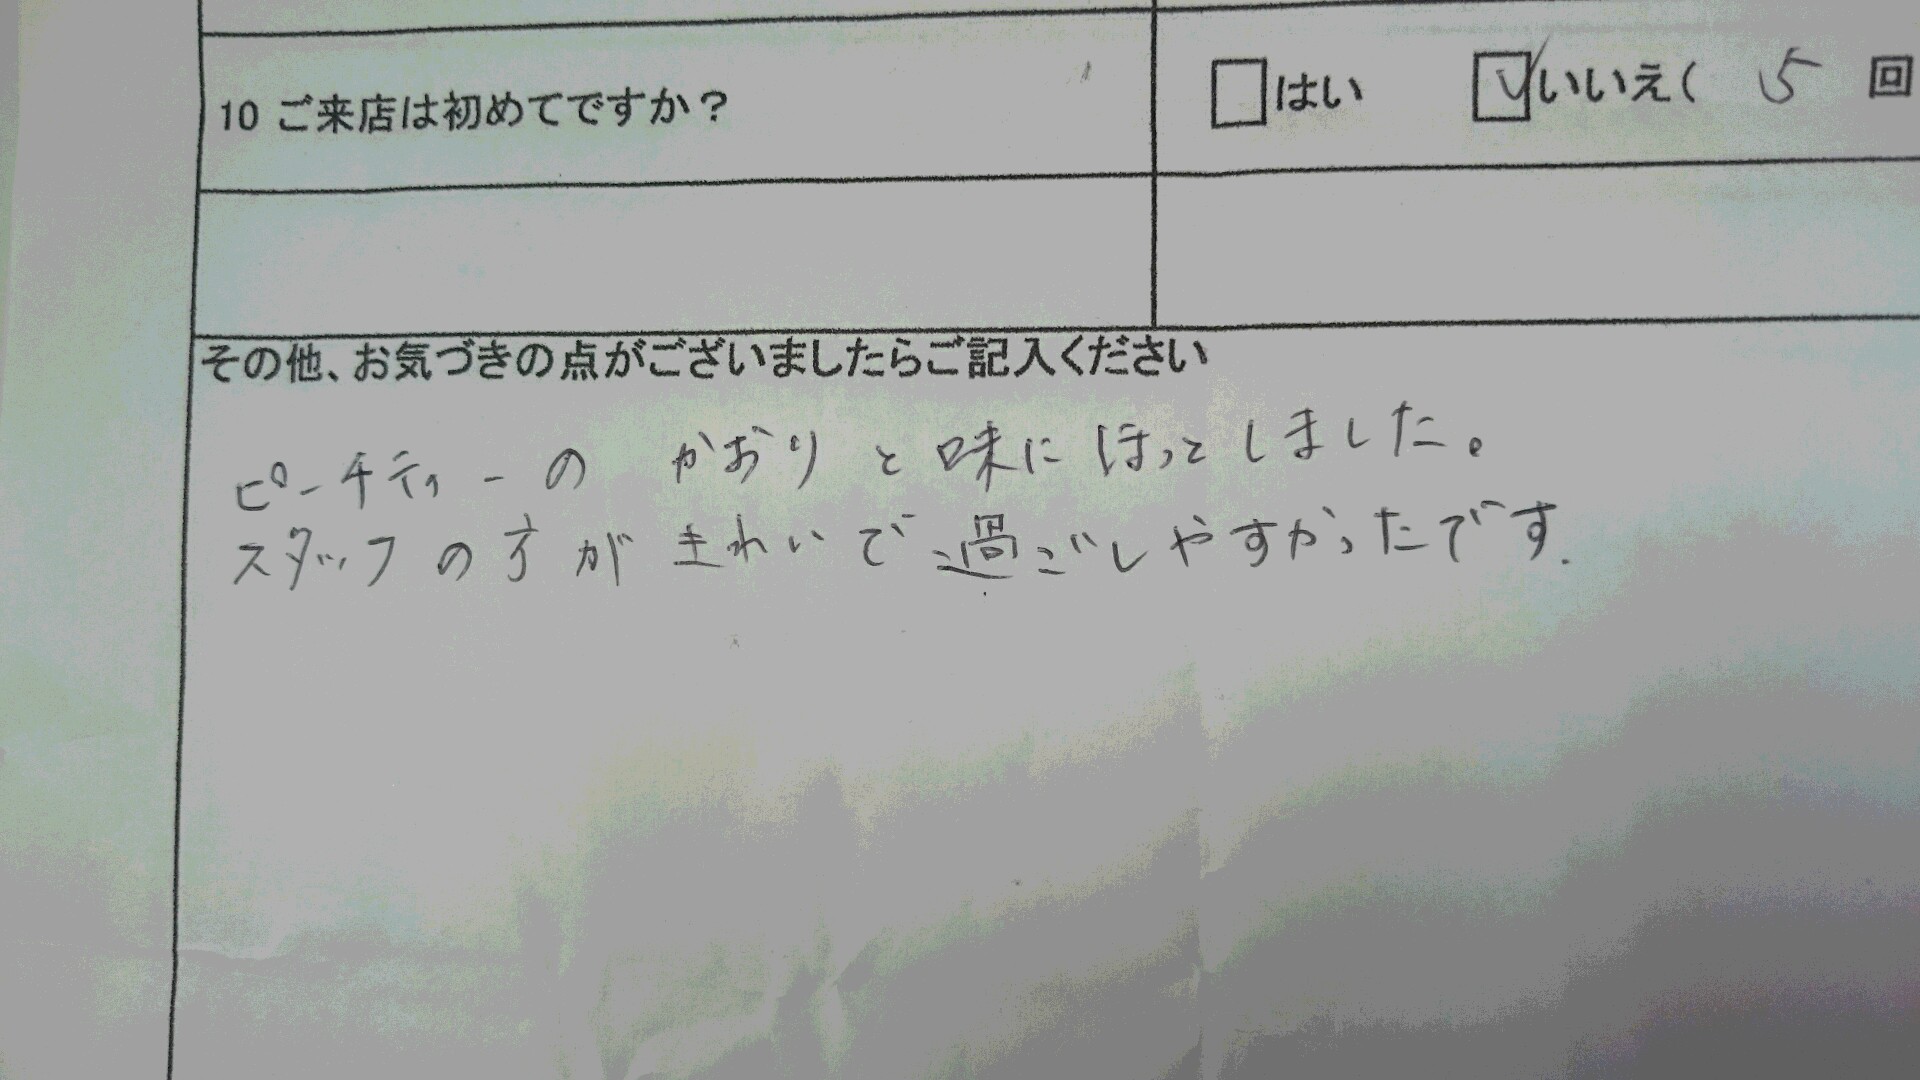 10 ご来店は初めてですか？
□はい ☑いいえ( 5 回
その他、お気づきの点がございましたらご記入ください
ピーチティーの かおりと味にほっとしました。
スタッフの方がきれいで過ごしやすかったです.